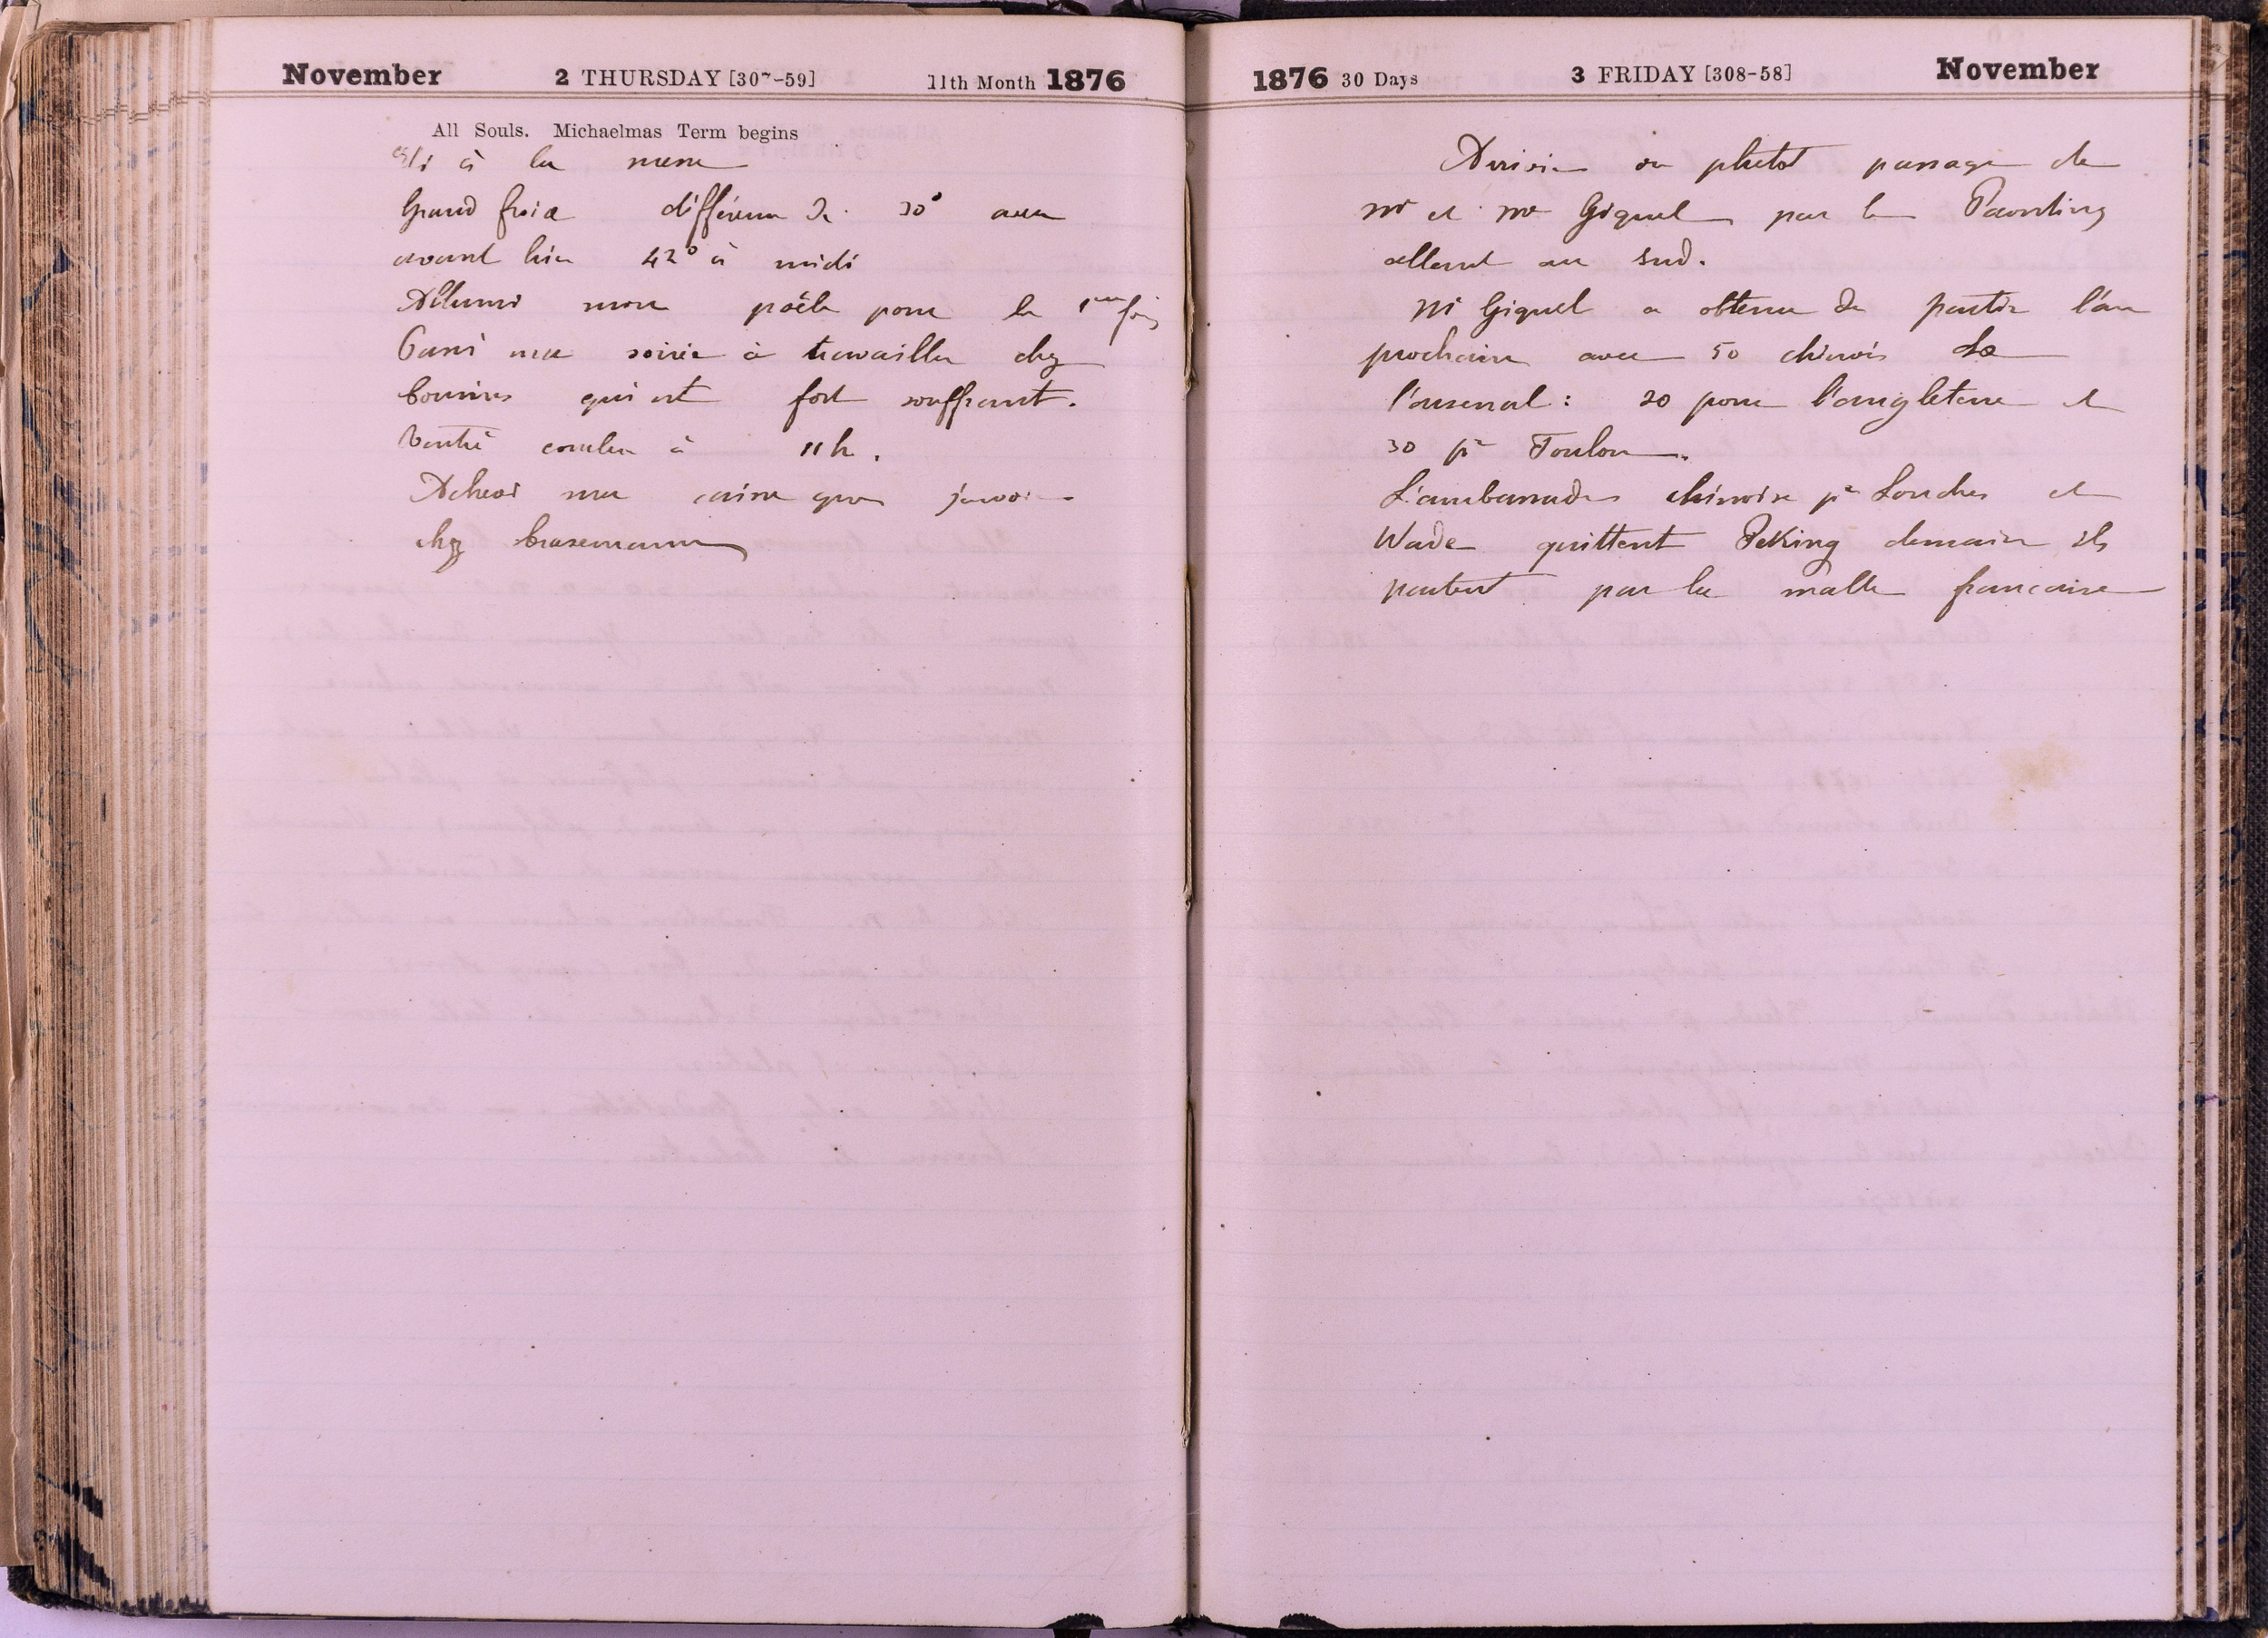 November 2 THURSDAY [307-59] 11th Month 1876
All Souls. Michaelmas Term begins
été à la messe
Grand froid différence de 30° avec
avant hier 42° à midi
Allumé mon poële pour la 1ère fois
Passé ma soirée à travailler chez
qui est fort souffrant.
Rentré coucher à 11h.
Achevé ma que j'avois
chez
1876 30 Days 3 FRIDAY [308-58] November
Arrivée ou plutot passage de
Mr et Me Giquel par le Paouting
allant au sud.
Mr Giquel a obtenu de partir l'an
prochain avec 50 chinois de
l'arsenal : 20 pour l'angleterre et
30 pr Toulon.
L'ambassade chinoise pr Londres et
Wade quittent Peking demain ils
partent par la malle francaise